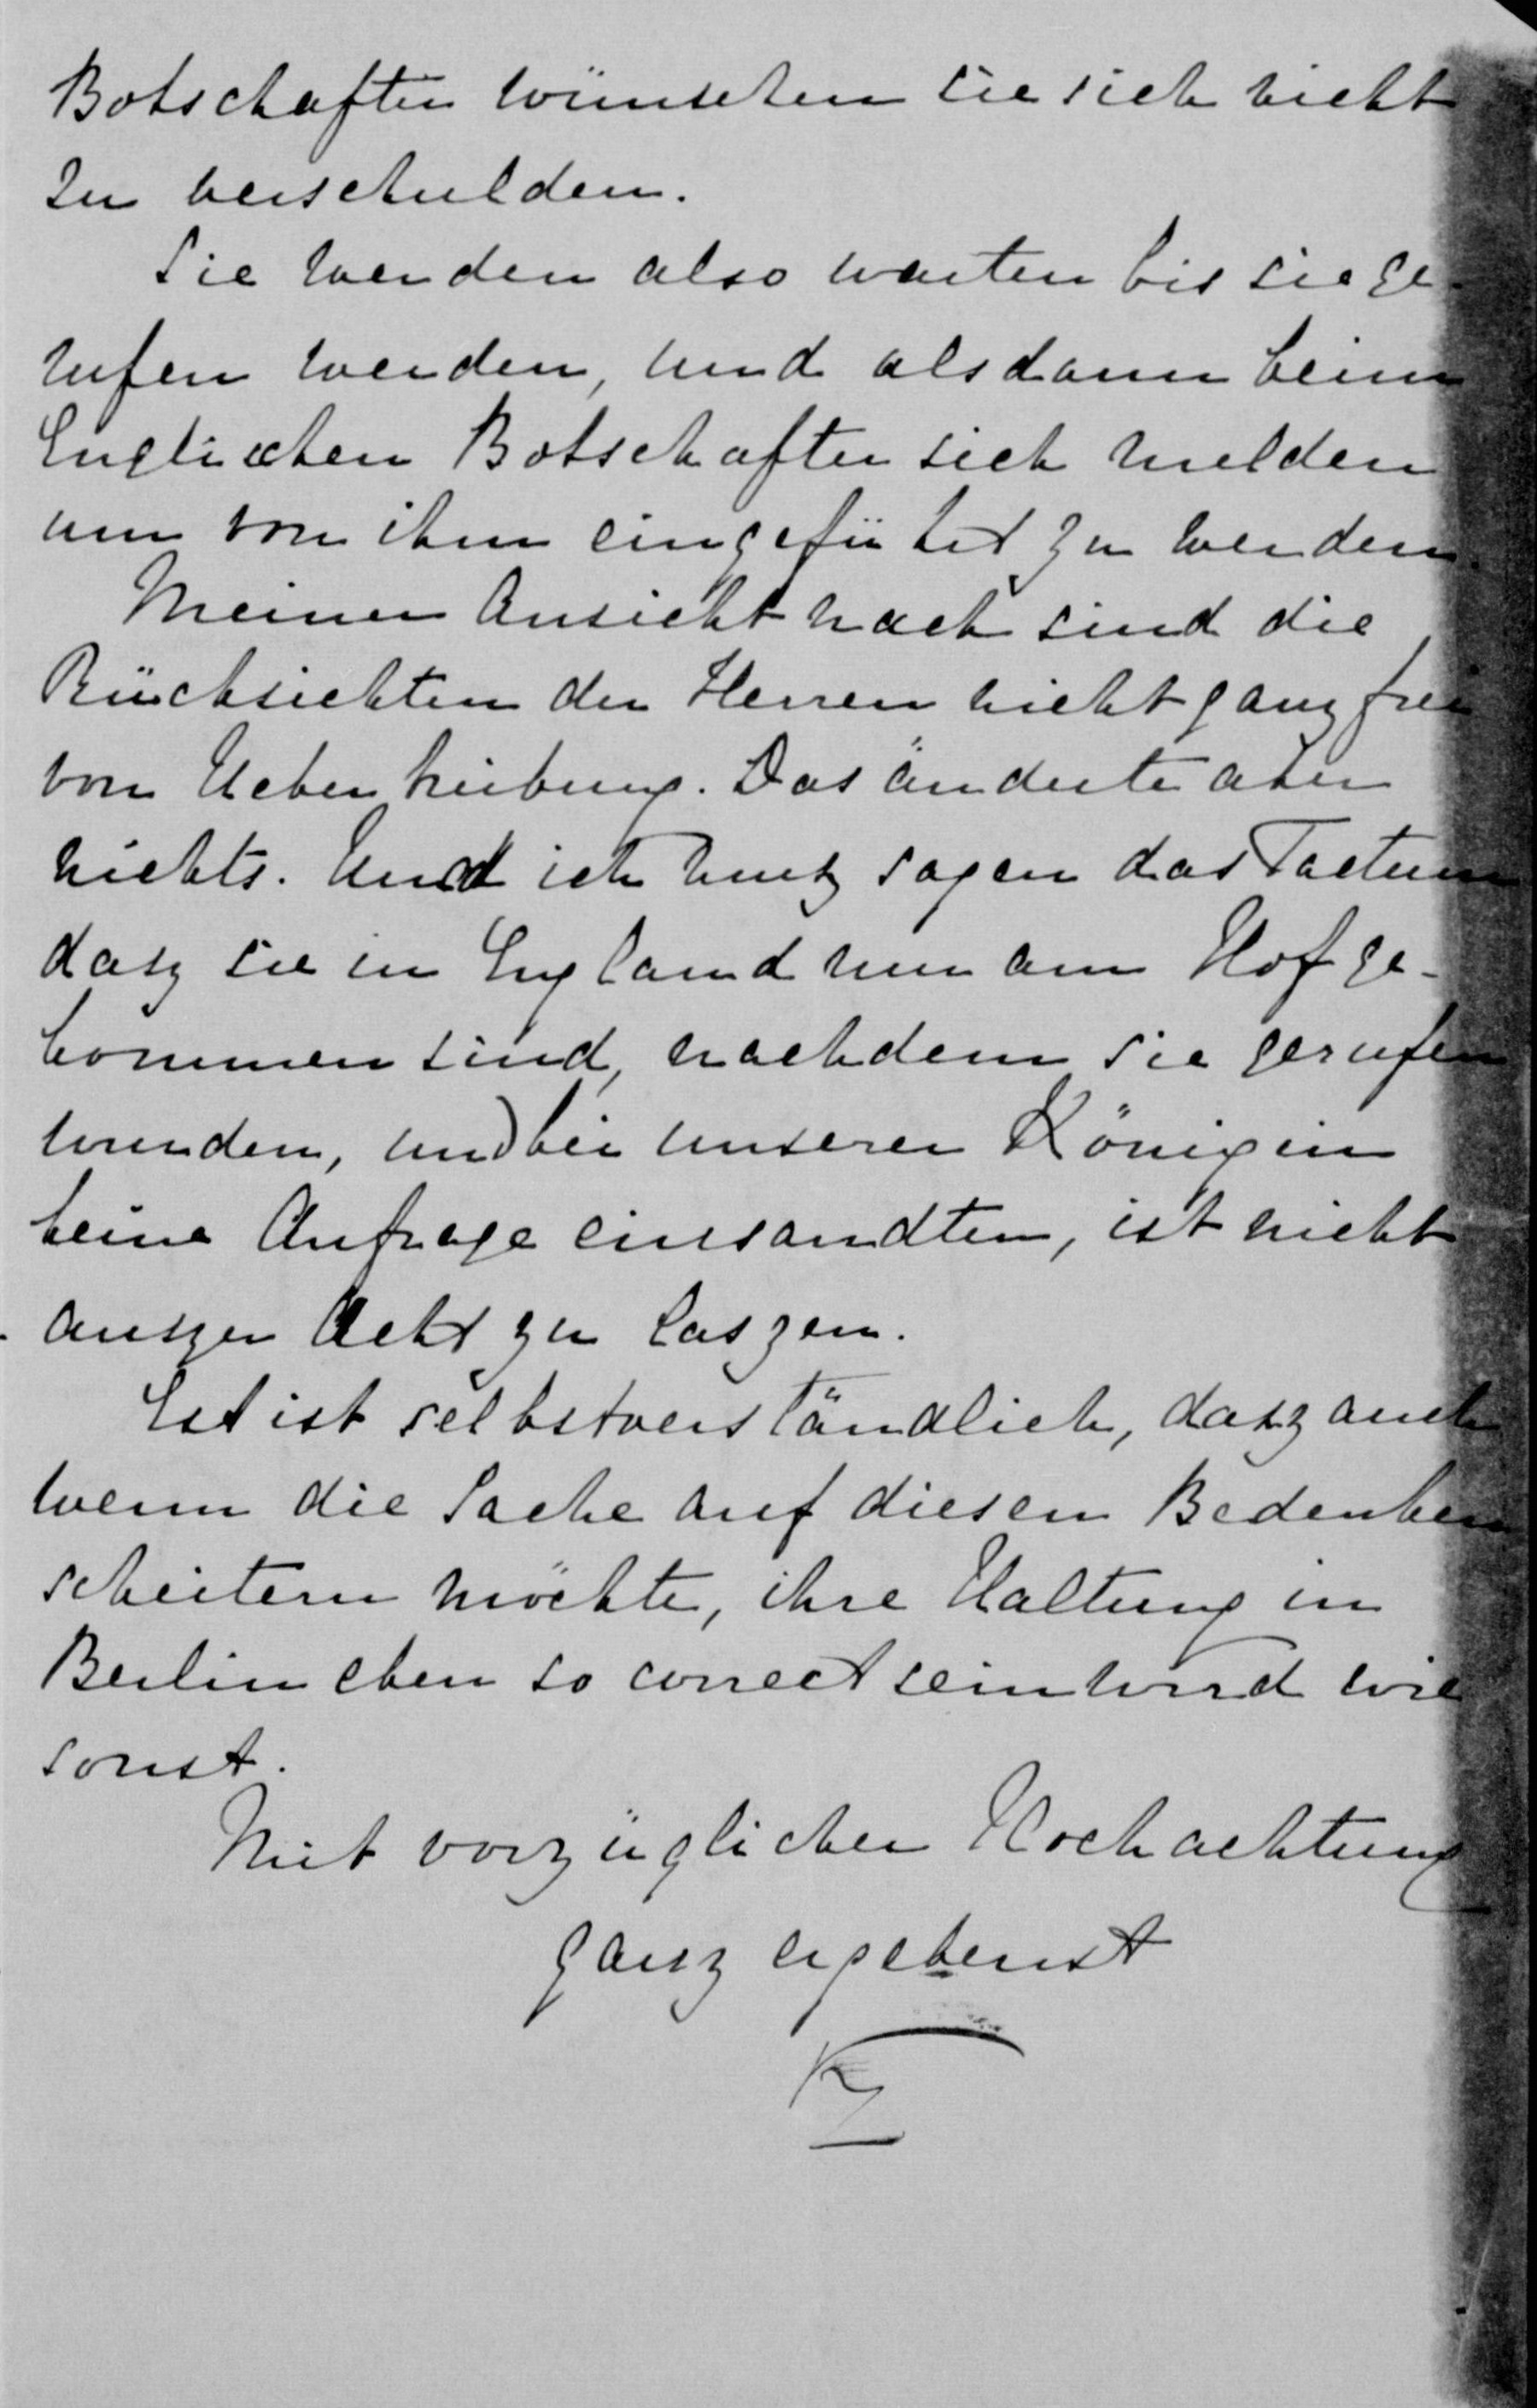 Botschafter wünschen sie sich nicht
zu verschulden.
Sie werden also warten bis sie ge-
rufen werden, und alsdann beim
Englischen Botschafter sich melden
um von ihm eingeführt zu werden.
Meiner Ansicht nach sind die
Rücksichten der Herren nicht ganz frei
von Uebertreibung. Das änderte aber
nichts. Und ich musz sagen das Factum
dasz sie in England nur am Hof ge-
kommen sind, nachdem sie gerufen
wurden, und bei unserer Königin
keine Anfrage einsandten, ist nicht
auszer Acht zu laszen.
Est ist selbstverständlich, dasz auch
wenn die Sache auf diesen Bedenken
scheitern möchte, ihre Haltung in
Berlin eben so correct sein wird wie
sonst.
Mit vorzüglicher Hochachtung
ganz ergebenst